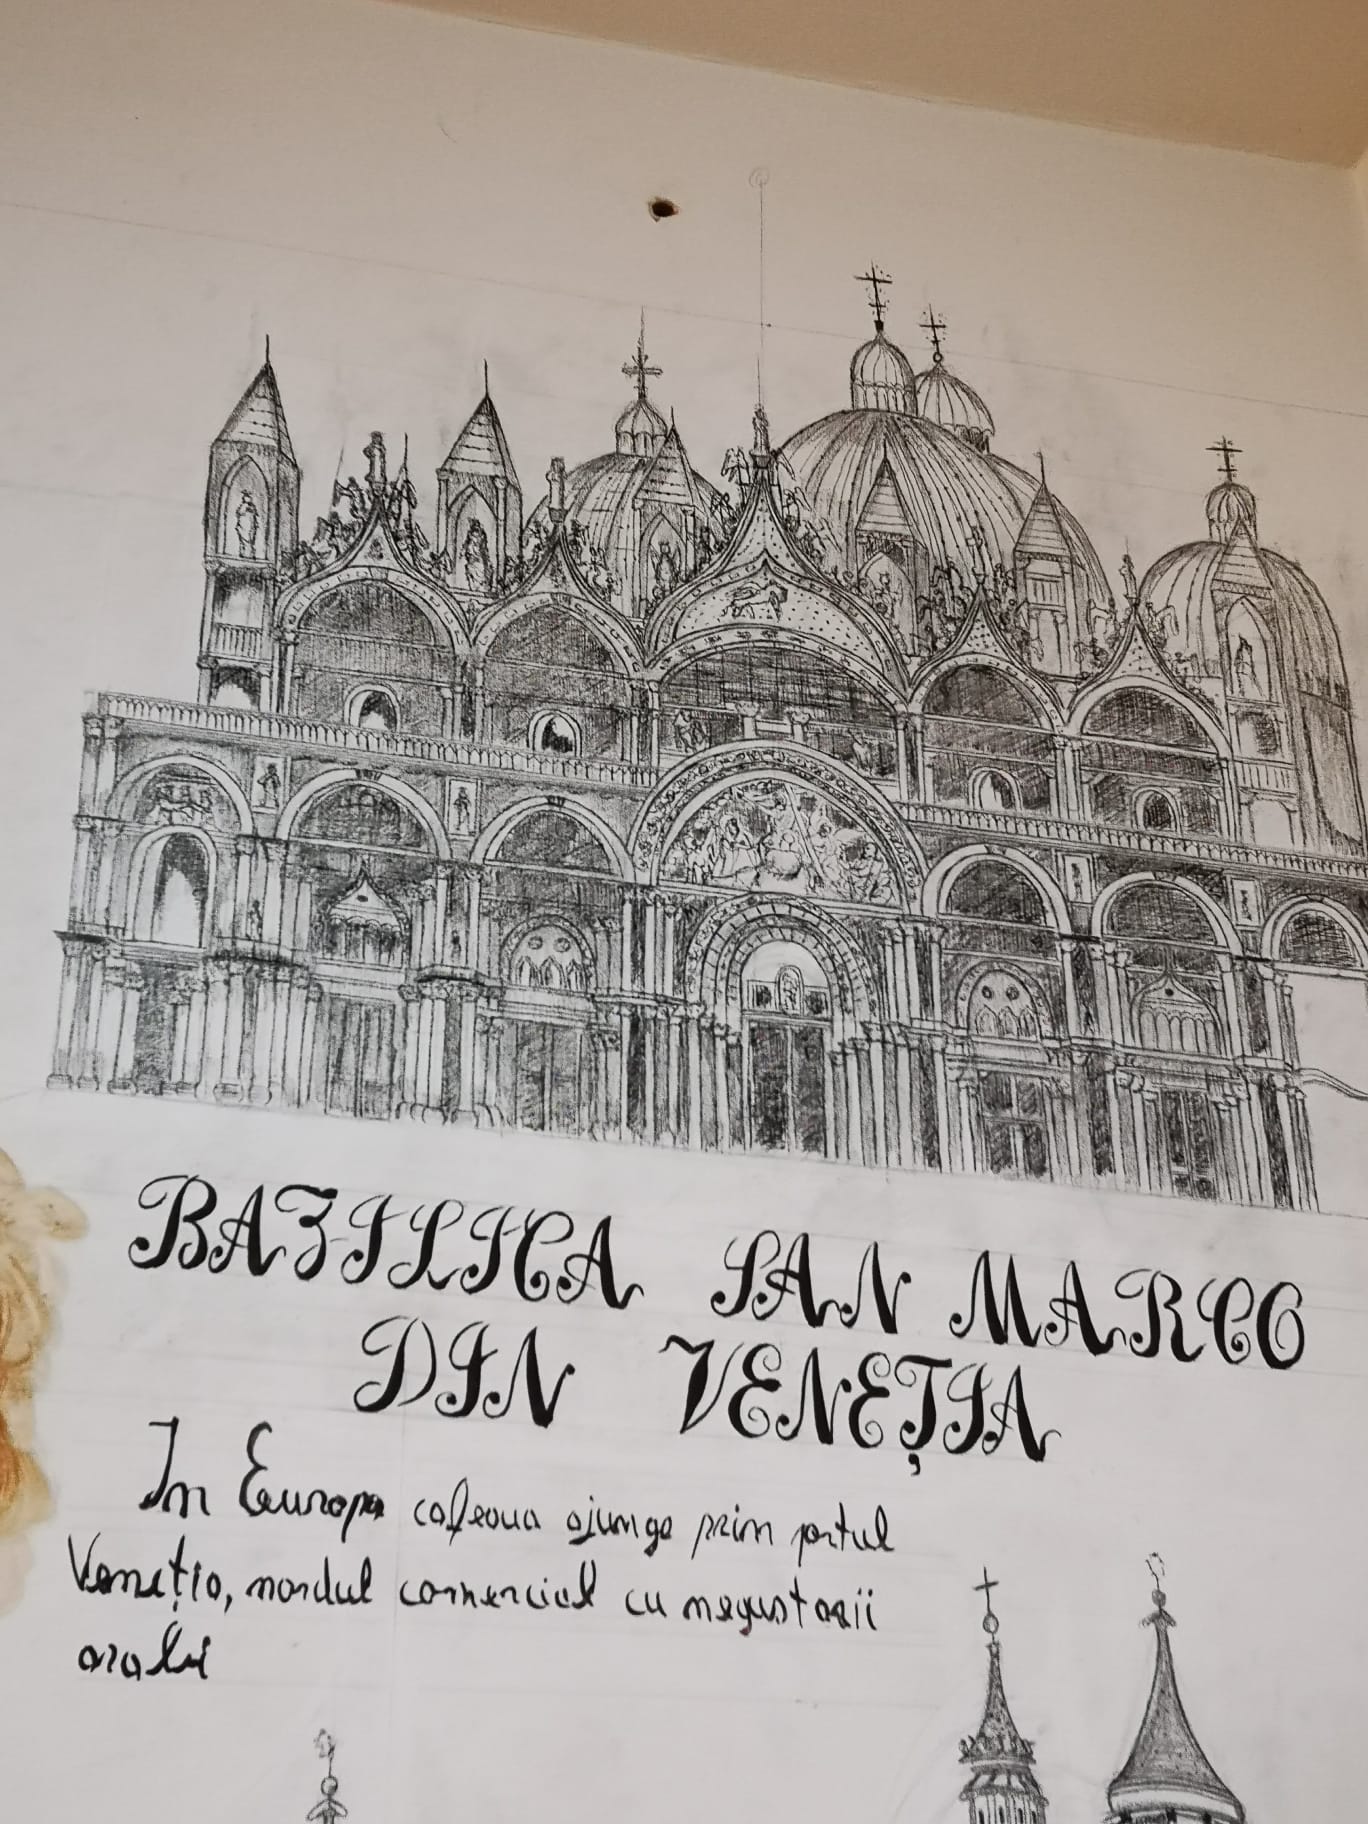 BAZILICA SAN MARCO
DIN VENEȚIA
In Europa cafeaua ajunge prin portul
Veneția, nordul comercial cu negustorii
arabi